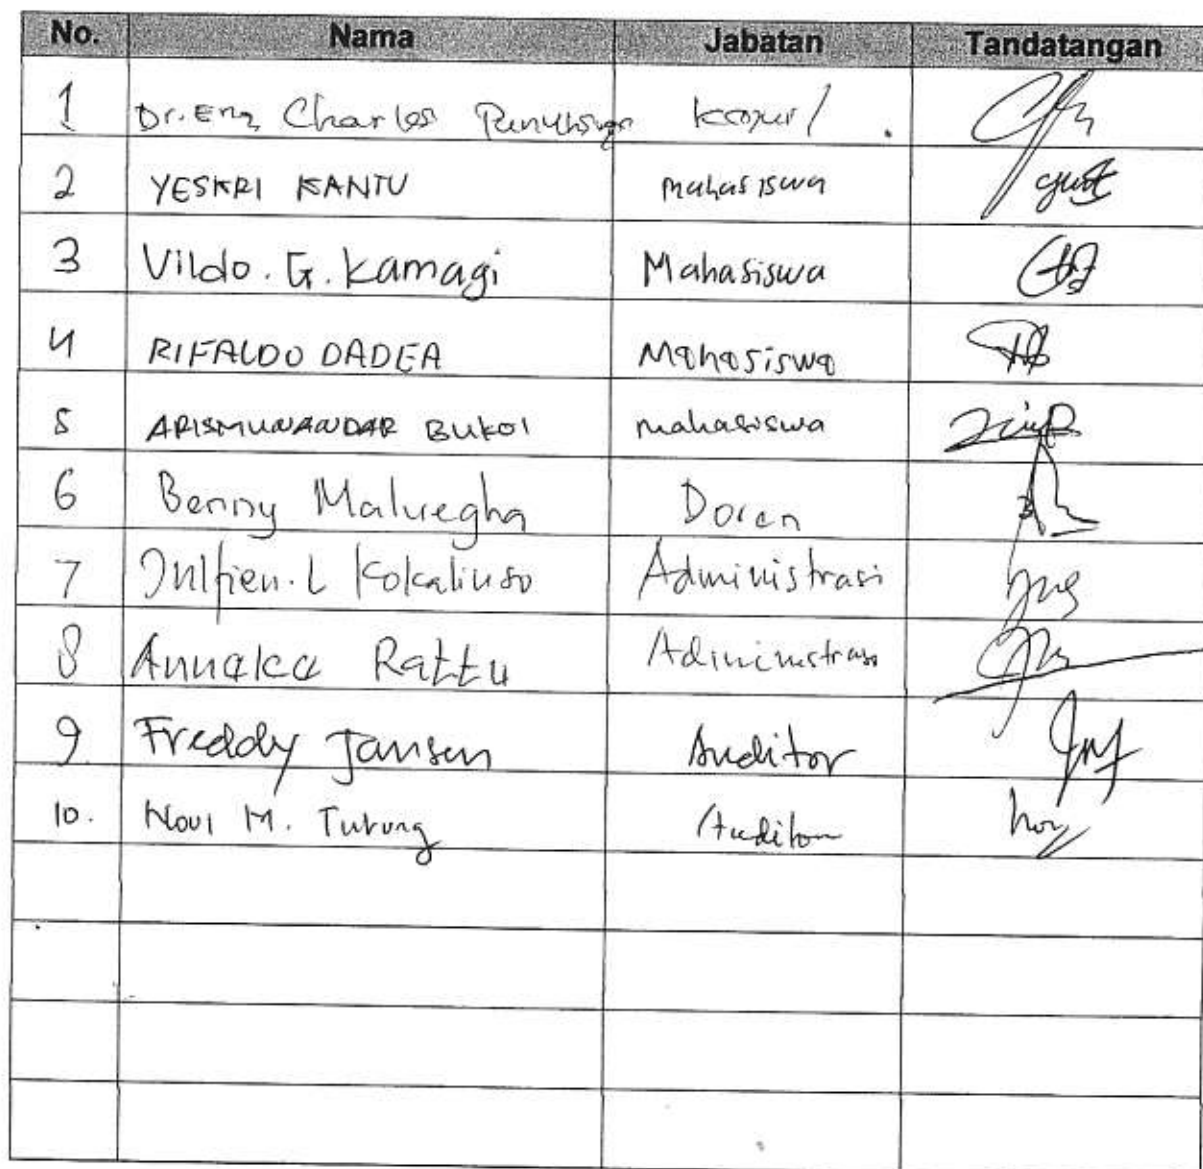 No. Nama Jabatan Tandatangan
1 Dr. Eng Charles
2 YESKRI KANTU mahasiswa
3 Vildo. G. Kamagi Mahasiswa
4 RIFALDO DADEA Mahasiswa
5 ARISMUNANDAR BUKOI mahasiswa
6 Benny Maluegha Dosen
7 Julfien. L Administrasi
8 Rattu Administrasi
9. Freddy Jansen Auditor
10. Novi M. Tutung Auditor